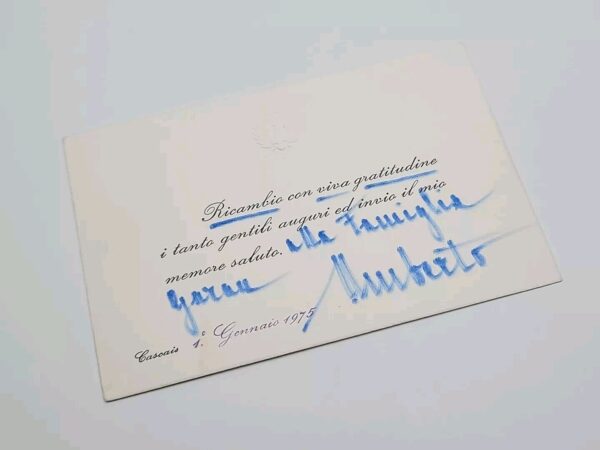 Ricambio con viva gratitudine
i tanto gentili auguri ed invio il mio
memore saluto. alla Famiglia
Garau Umberto
Cascais 1.° Gennaio 1975